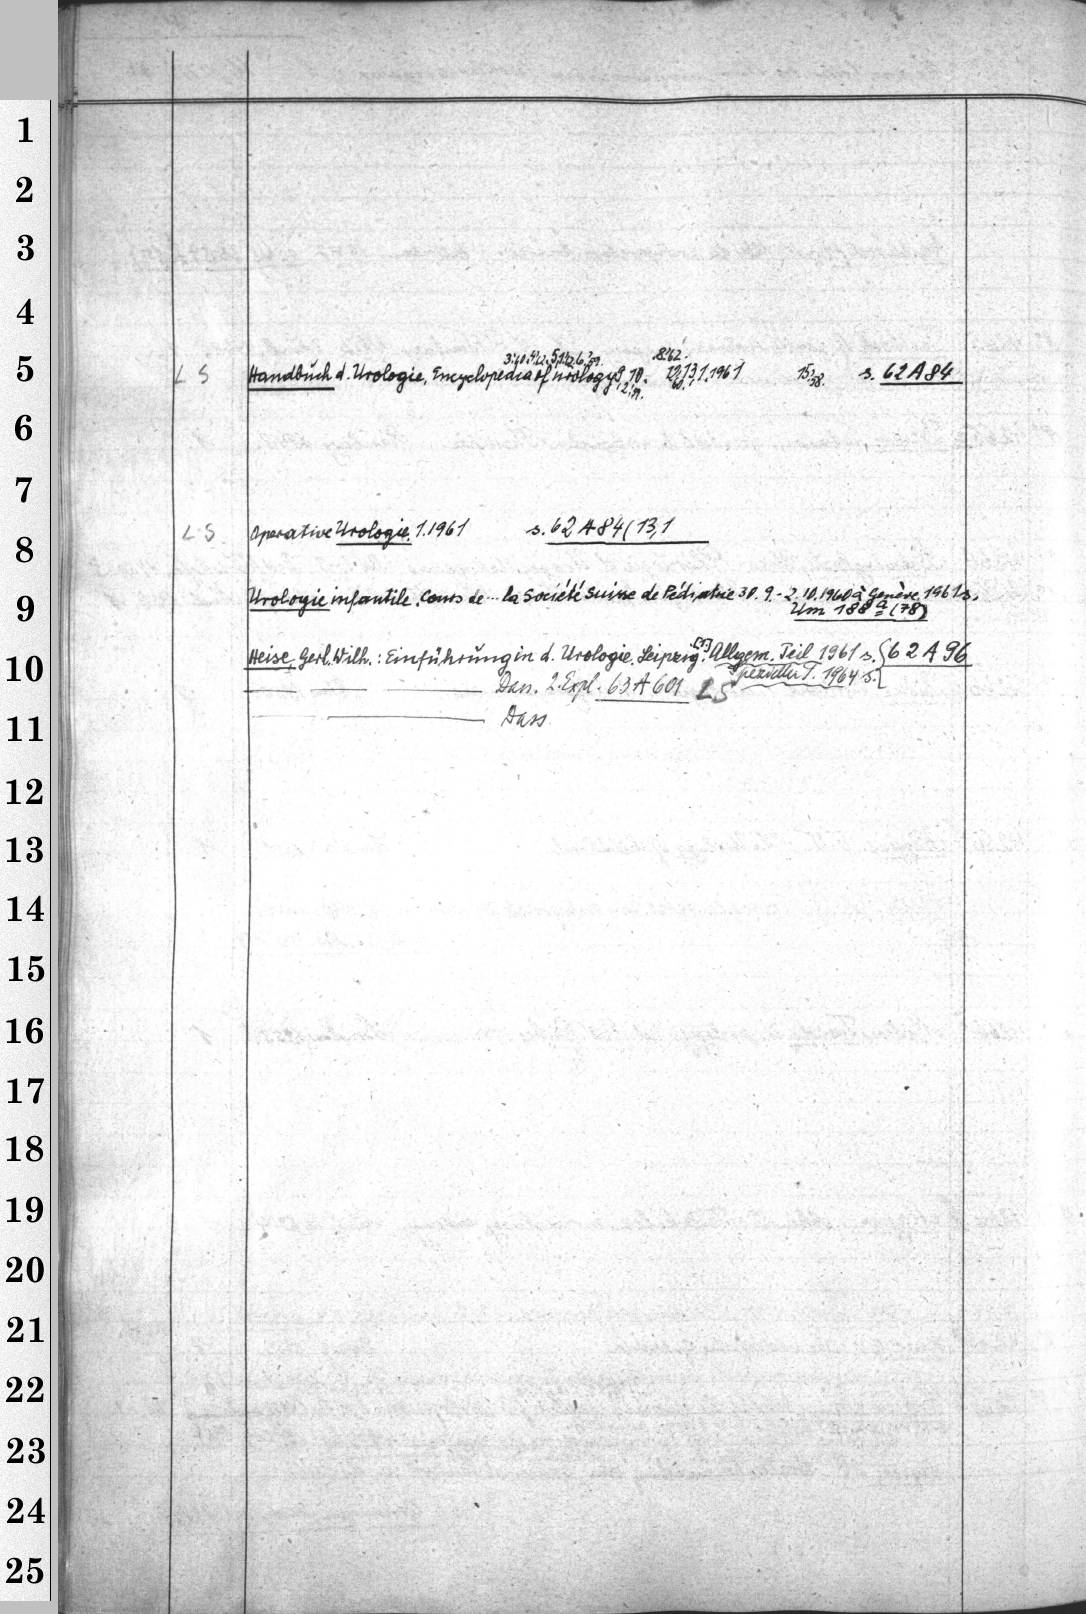 1
2
3
4
5
LS Handbuch d. Urologie, Encyclopedia of urology 9, 10. 12, 13,1.1961 15,58. s. 62 A 84
8'62.
6
7
8
LS Operative Urologie. 1.1961 s. 62 A 84 (13,1
9
Urologie infantile. Cours de ... la Société Suisse de Pédiatrie 30.9.-2.10.1960 à Genève. 1961 s.
Um 188 a (78)
10
Heise, Gerl. Wilh.: Einführung in d. Urologie. Leipzig. [1] Allgem. Teil 1961 s. {62 A 96
Spezieller T. 1964 s.
— — Das. 2. Expl. 63 A 601 LS
11
— — Dass.
12
13
14
15
16
17
18
19
20
21
22
23
24
25